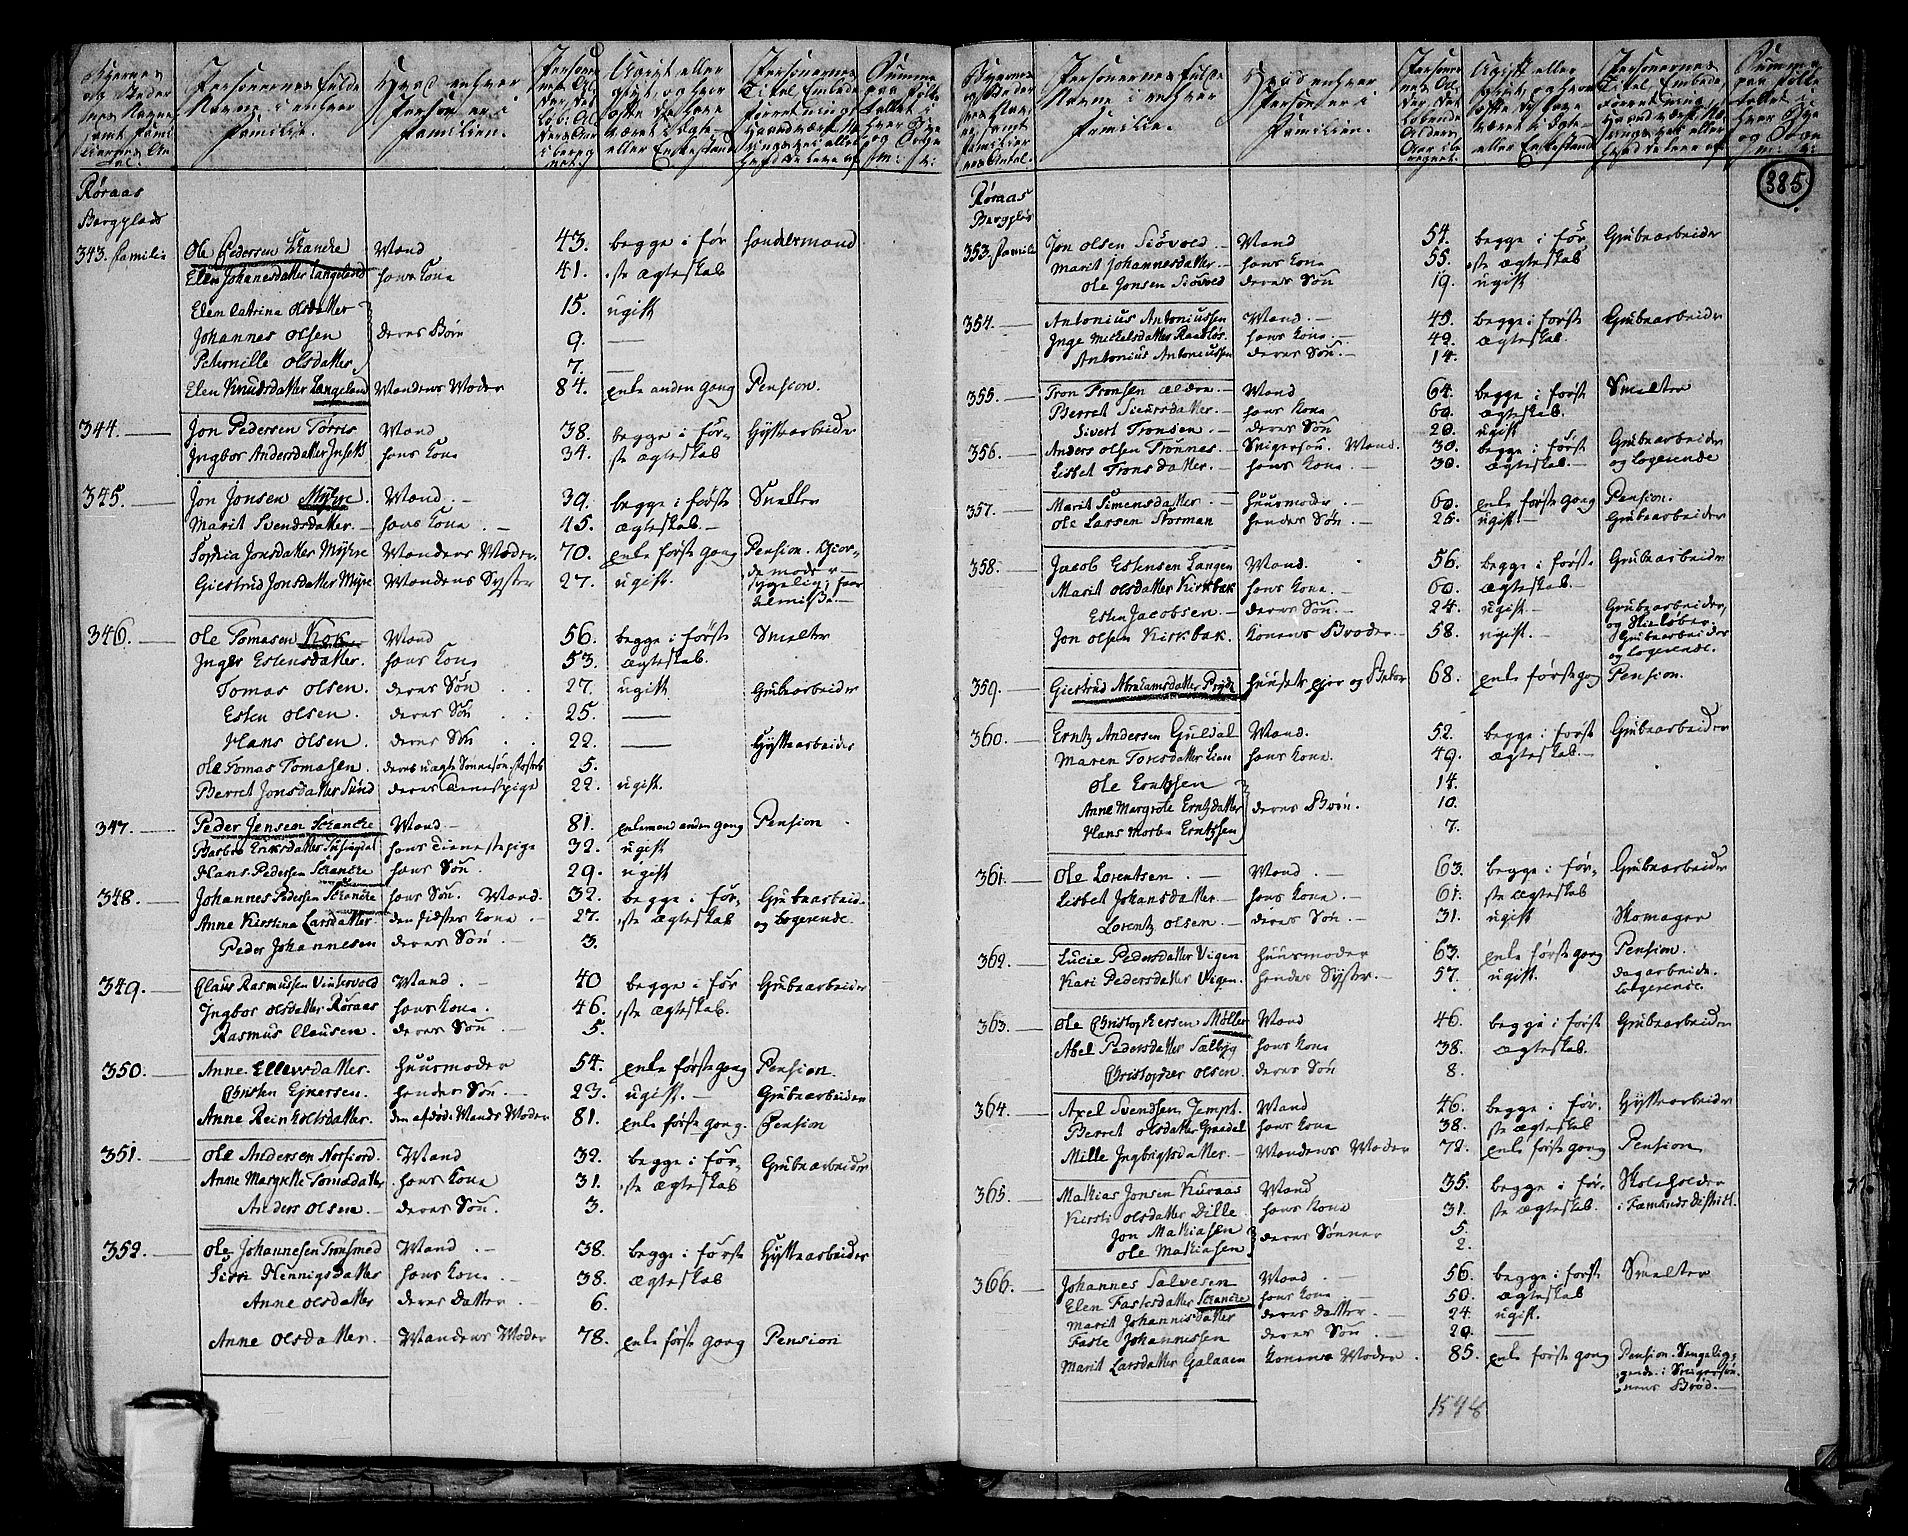 Røraas
Bergplads
343. Familie Ole Pedersen Skancke Mand 43. begge i før- Handelsmand
Elen Johanesdatter Langeland hans Kone 41. ste ægteskab
Elen Catrina Olsdatter 15. ugift
Johannes Olsen deres Børn 9. —
Peternille Olsdatter 7. —
Elen Knudsdatter Langeland Mandens Moder 84. enke anden gang Pension.
344. — Jon Pedersen Torres Mand 38. begge i før- Hyttearbeider
Ingbor Andersdatter Insett hans Kone 34. ste ægteskab
345. — Jon Jonsen Myhre. Mand. — 39. begge i første Snekker
Marit Svendsdatter. — hans Kone. — 45. ægteskab —
Sophia Jonsdatter Myhre Mandens Moder. 70. enke første gang Pension. Gior-
demoder —
Giertrud Jonsdatter Myre Mandens Syster 27. ugift. sygelig, faar
almisse. —
346. — Ole Tomasen Kok Mand 56. begge i første Smelter
Inger Estensdatter. hans Kone 53. ægteskab.
Tomas Olsen. deres Søn 27. ugift Grubearbeider
Esten Olsen. deres Søn 25. —
Hans Olsen. deres Søn 22. — Hyttearbeider
Ole Tomas Tomasen. deres uægte Sønnesøn 5.
Berret Jonsdatter Sund deres Tienestepige 22. ugift.
347. — Peder Jensen Skancke Mand — 81. enkemand anden gang Pension
Barbro Eriksdatter hans Tienestepige 32. ugift
Hans Pedersen Skancke hans Søn. 29. ugift
348. — Johannes Pedersen Skancke hans Søn. Mand. 32. begge i før- Grubearbeid.
Anne Kirstina Larsdatter. den sidstes Kone. — 27. ste ægteskab og Logerende.
Peder Johannesen deres Søn. — 3.
349. — Claus Rasmussen Vintervold Mand. — 40 begge i før Grubearbeider
Ingbor Olsdatter Røraas hans Kone. 46. ste ægteskab.
Rasmus Clausen. deres Søn. 5.
350. — Anne Ellevsdatter. Huusmoder 54. enke første gang Pension.
Christen Ejnersen. hendes Søn. 23. ugift. — Grubearbeider
Anne Reinholtsdatter. den afdøde Mands Moder 81. enke første gang. Pension
351. — Ole Andersen Norfiord. Mand 32. begge i før- Grubearbeider
Anne Margrette Tomasdatter hans Kone 31. ste ægteskab
Anders Olsen. — deres Søn. 3.
352. — Ole Johannesen Tronsmod Mand. — 38. begge i første Hyttearbeider
Siri Hennigsdatter hans Kone. 38. ægteskab
Anne Olsdatter deres Datter. 6.
Anne Olsdatter. — Mandens Moder 78. enke første gang Pension
385
Røraas
Bergplas
353. Famili Jon Olsen Siøvold. — Mand 54. begge i før Grubearbeider
Marit Johannesdatter. — hans Kone 55. ste ægteskab
Ole Jonsen Siøvold deres Søn 19. ugift
354. — Antonius Antoniussen Mand. — 45. begge i første Grubearbeider
Inge Mickelsdatter hans Kone. — 42. ægteskab.
Antonius Antoniussen deres Søn. — 14.
355. — Tron Tronsen ældre — Mand 64. begge i første Smelter
Berret Siursdatter. — hans Kone 60. ægteskab.
Sivert Tronsen. — deres Søn 20. ugift
356. — Anders Olsen Trønnes. Svigersøn. Mand. 30. begge i første Grubearbeider
Lisbet Tronsdatter. — hans Kone. 30. ægteskab. — og Logerende
357. — Marit Simensdatter. Huusmoder. — 60. enke første gang Pension.
Ole Larsen Storman hendes Søn. — 25. ugift. — Grubearbeider
358. — Jacob Estensen Langen Mand. 56. begge i første Grubearbeider
Marit Olsdatter Kirkbak hans Kone. — 60. ægteskab. —
Esten Jacobsen. — deres Søn. — 24. ugift. — Grubearbeider,
og Skieløber.
Jon Olsen Kirkbak. Konens Broder. — 58. ugift. — Grubearbeider
og Logerende.
359. — Giertrud Abrahamsdatter Pryds Huusets ejer og Beboer 68. enke første gang Pension.
360. — Erntz Andersen Guldal Mand. 52. begge i først Grubearbeider
Maren Toresdatter Lien hans Kone. 49. ægteskab. —
Ole Erntzsen 14.
Anne Margrete Erntzdatter deres Børn. 10.
Hans Morten Erntzsen 7.
361. — Ole Lorentsen. — Mand. — 63. begge i før- Grubearbeider
Lisbet Johansdatter. — hans Kone. — 61. ste ægteskab
Lorentz Olsen. — deres Søn. — 31. ugift Skomager
362. — Lucie Pedersdatter Vigen Huusmoder 63. enke første gang Pension.
Kari Pedersdatter Vigen. hendes Syster. — 57. ugift. dagarbeide.
Logerende.
363. — Ole Christophersen Møller Mand 46. begge i først Grubearbeider
Abel Pedersdatter Sælbyg hans Kone 38. ægteskab.
Christopher Olsen. deres Søn 8.
364. — Axel Svendsen Jempt. Mand 46. begge i før. Hyttearbeider
Berret Olsdatter Graadal hans Kone 38. ste ægteskab
Mille Ingbrigtsdatter. — Mandens Moder 72. enke første gang Pension
365. — Mathias Jonsen Kuraas Mand 35. begge i før Skoleholder
Kirsti Olsdatter Dille. hans Kone 31. ste ægteskab. i Fæmunds district.
Jon Mathiasen deres Sønner 5.
Ole Mathiasen 2.
366. — Johannes Salvesen Mand. — 56. begge i først Smelter
Elen Fastesdatter Skancke hans Kone 50. ægteskab
Marit Johannisdatter deres Datter. — 24 ugift.
Faste Johannissen deres Søn. — 20. —
Marit Larsdatter Galaaen Konens Moder. 85. enke første gang Pension. Sengelig-
gende i Svigersøn-
nens Brød. —
1548